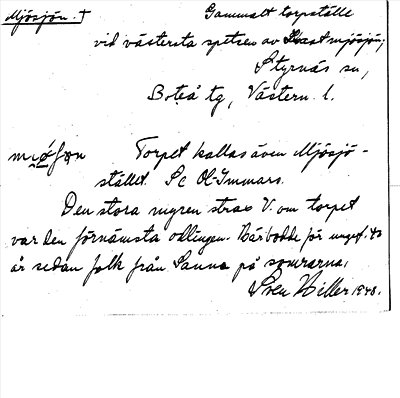 Mjösjön. †
Gammalt torpställe
vid västersta spetsen av mjösjön;
Styrnäs sn,
Boteå tg, Västern. l.
Torpet kallas även Mjösjö-
stället. Se Ol-Immars.
Den stora myren strax V. om torpet
var den förnämsta odlingen. Här bodde för ungef. 40
år sedan folk från Sanna på somrarna.
Sven Hiller 1948.